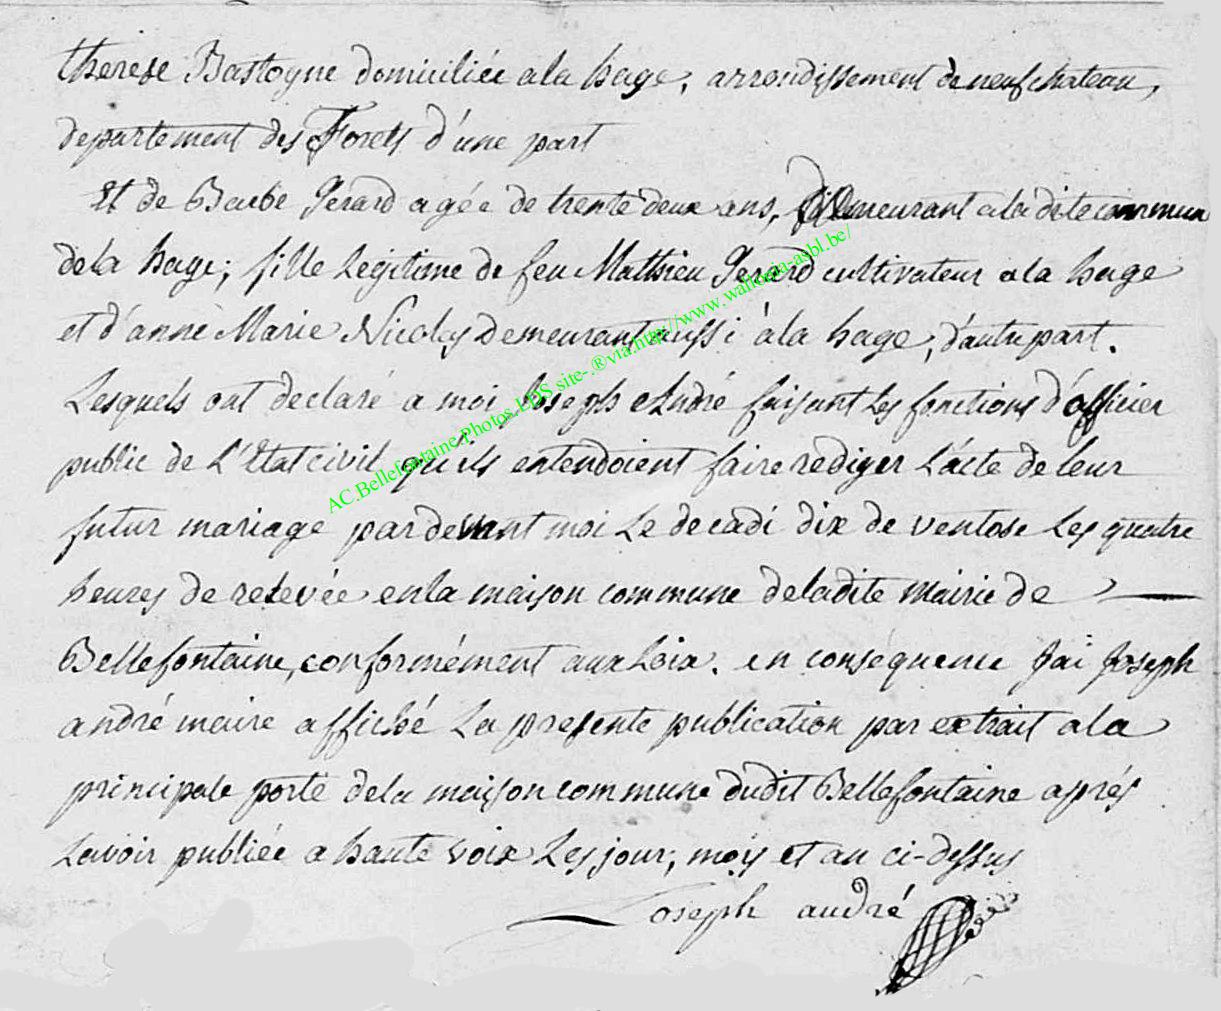 therese Bastogne domiciliée a la hage, arrondissement de neufchateau,
departement des Forets d'une part
Et de Barbe Gerard agée de trente deux ans, demeurant a la dite commun
de la hage; fille legitime de feu Mathieu Gerard cultivateur a la hage
et d'anne Marie Nicolay demeurant aussi à la hage, d'autre part.
Lesquels ont declaré a moi Joseph André faisant les fonctions d'officier
public de L'Etat civil qu'ils entendoient faire rediger L'acte de leur
futur mariage pardevant moi Le decadi dix de ventose Les quatre
heures de relevée en la maison commune de ladite mairie de
Bellefontaine, conformément aux Loix. en conséquence j'ai Joseph
andré maire affiché La presente publication par extrait a la
principale porte de la maison commune dudit Bellefontaine aprés
Lavoir publiée a haute voix Les jour, mois et an ci-dessus
Joseph andré
AC.Bellefontaine.Photos.LDS site-.®via.http://www.wallonia-asbl.be/